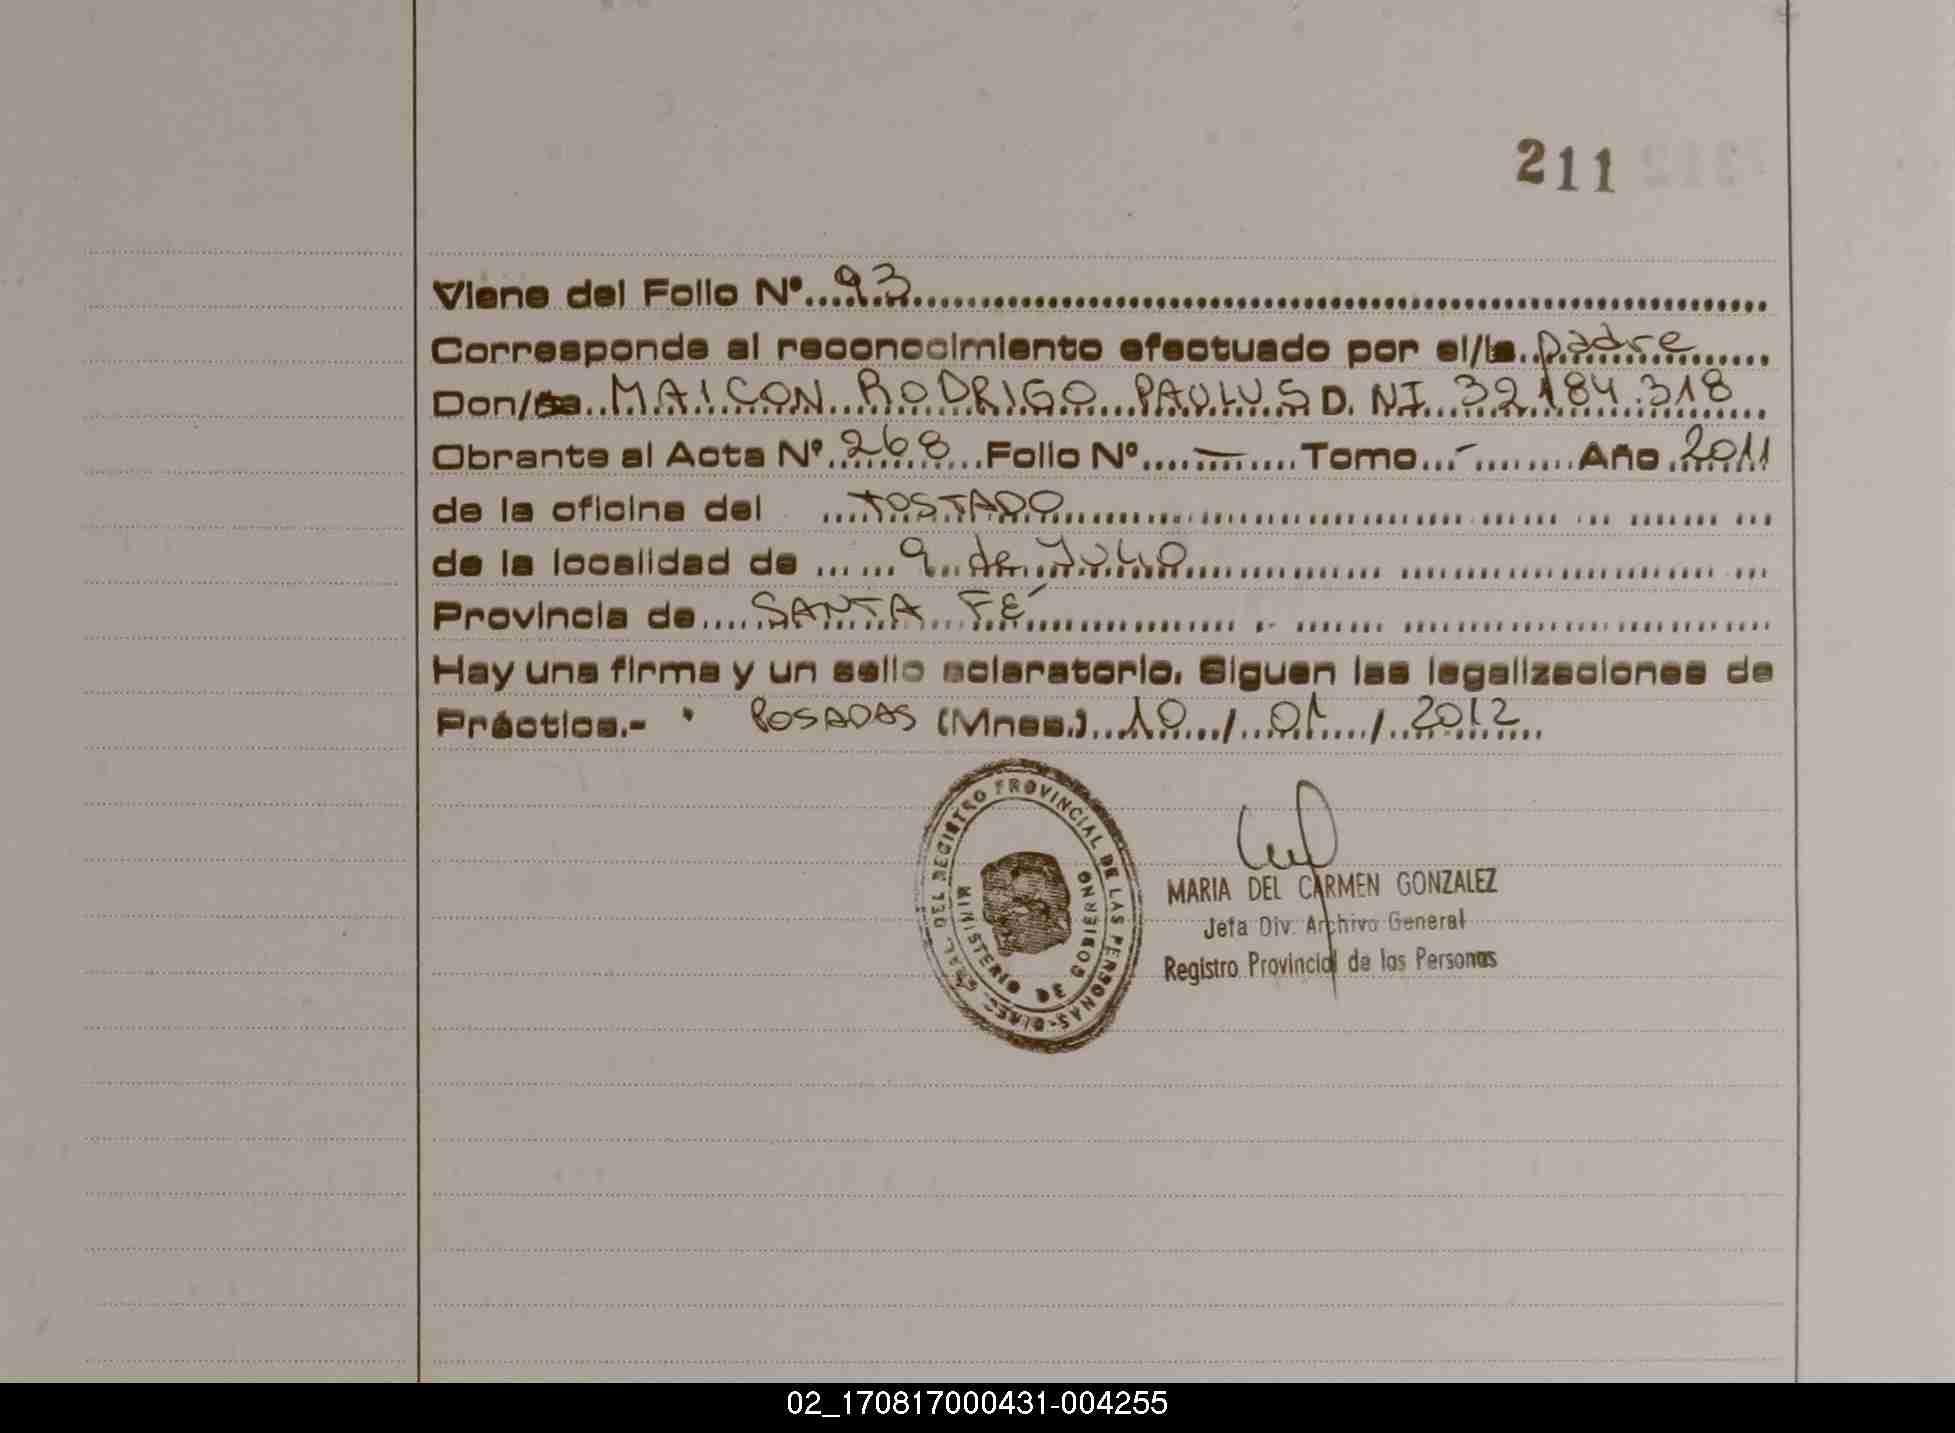 211
Viene del Folio Nº 93
Corresponde al reconocimiento efectuado por el/la padre
Don/ña MAICON RODRIGO PAULUS D. NI 32.184.318
Obrante al Acta Nº 268 Folio Nº — Tomo - Año 2011
de la oficina del TOSTADO
de la localidad de 9 de JULIO
Provincia de SANTA FÉ
Hay una firma y un sello aclaratorio. Siguen las legalizaciones de
Práctica.- POSADAS (Mnes.) 10 / 01 / 2012
GRAL. DEL REGISTRO PROVINCIAL DE LAS PERSONAS
MINISTERIO DE GOBIERNO
MARIA DEL CARMEN GONZALEZ
Jefa Div. Archivo General
Registro Provincial de las Personas
02_170817000431-004255